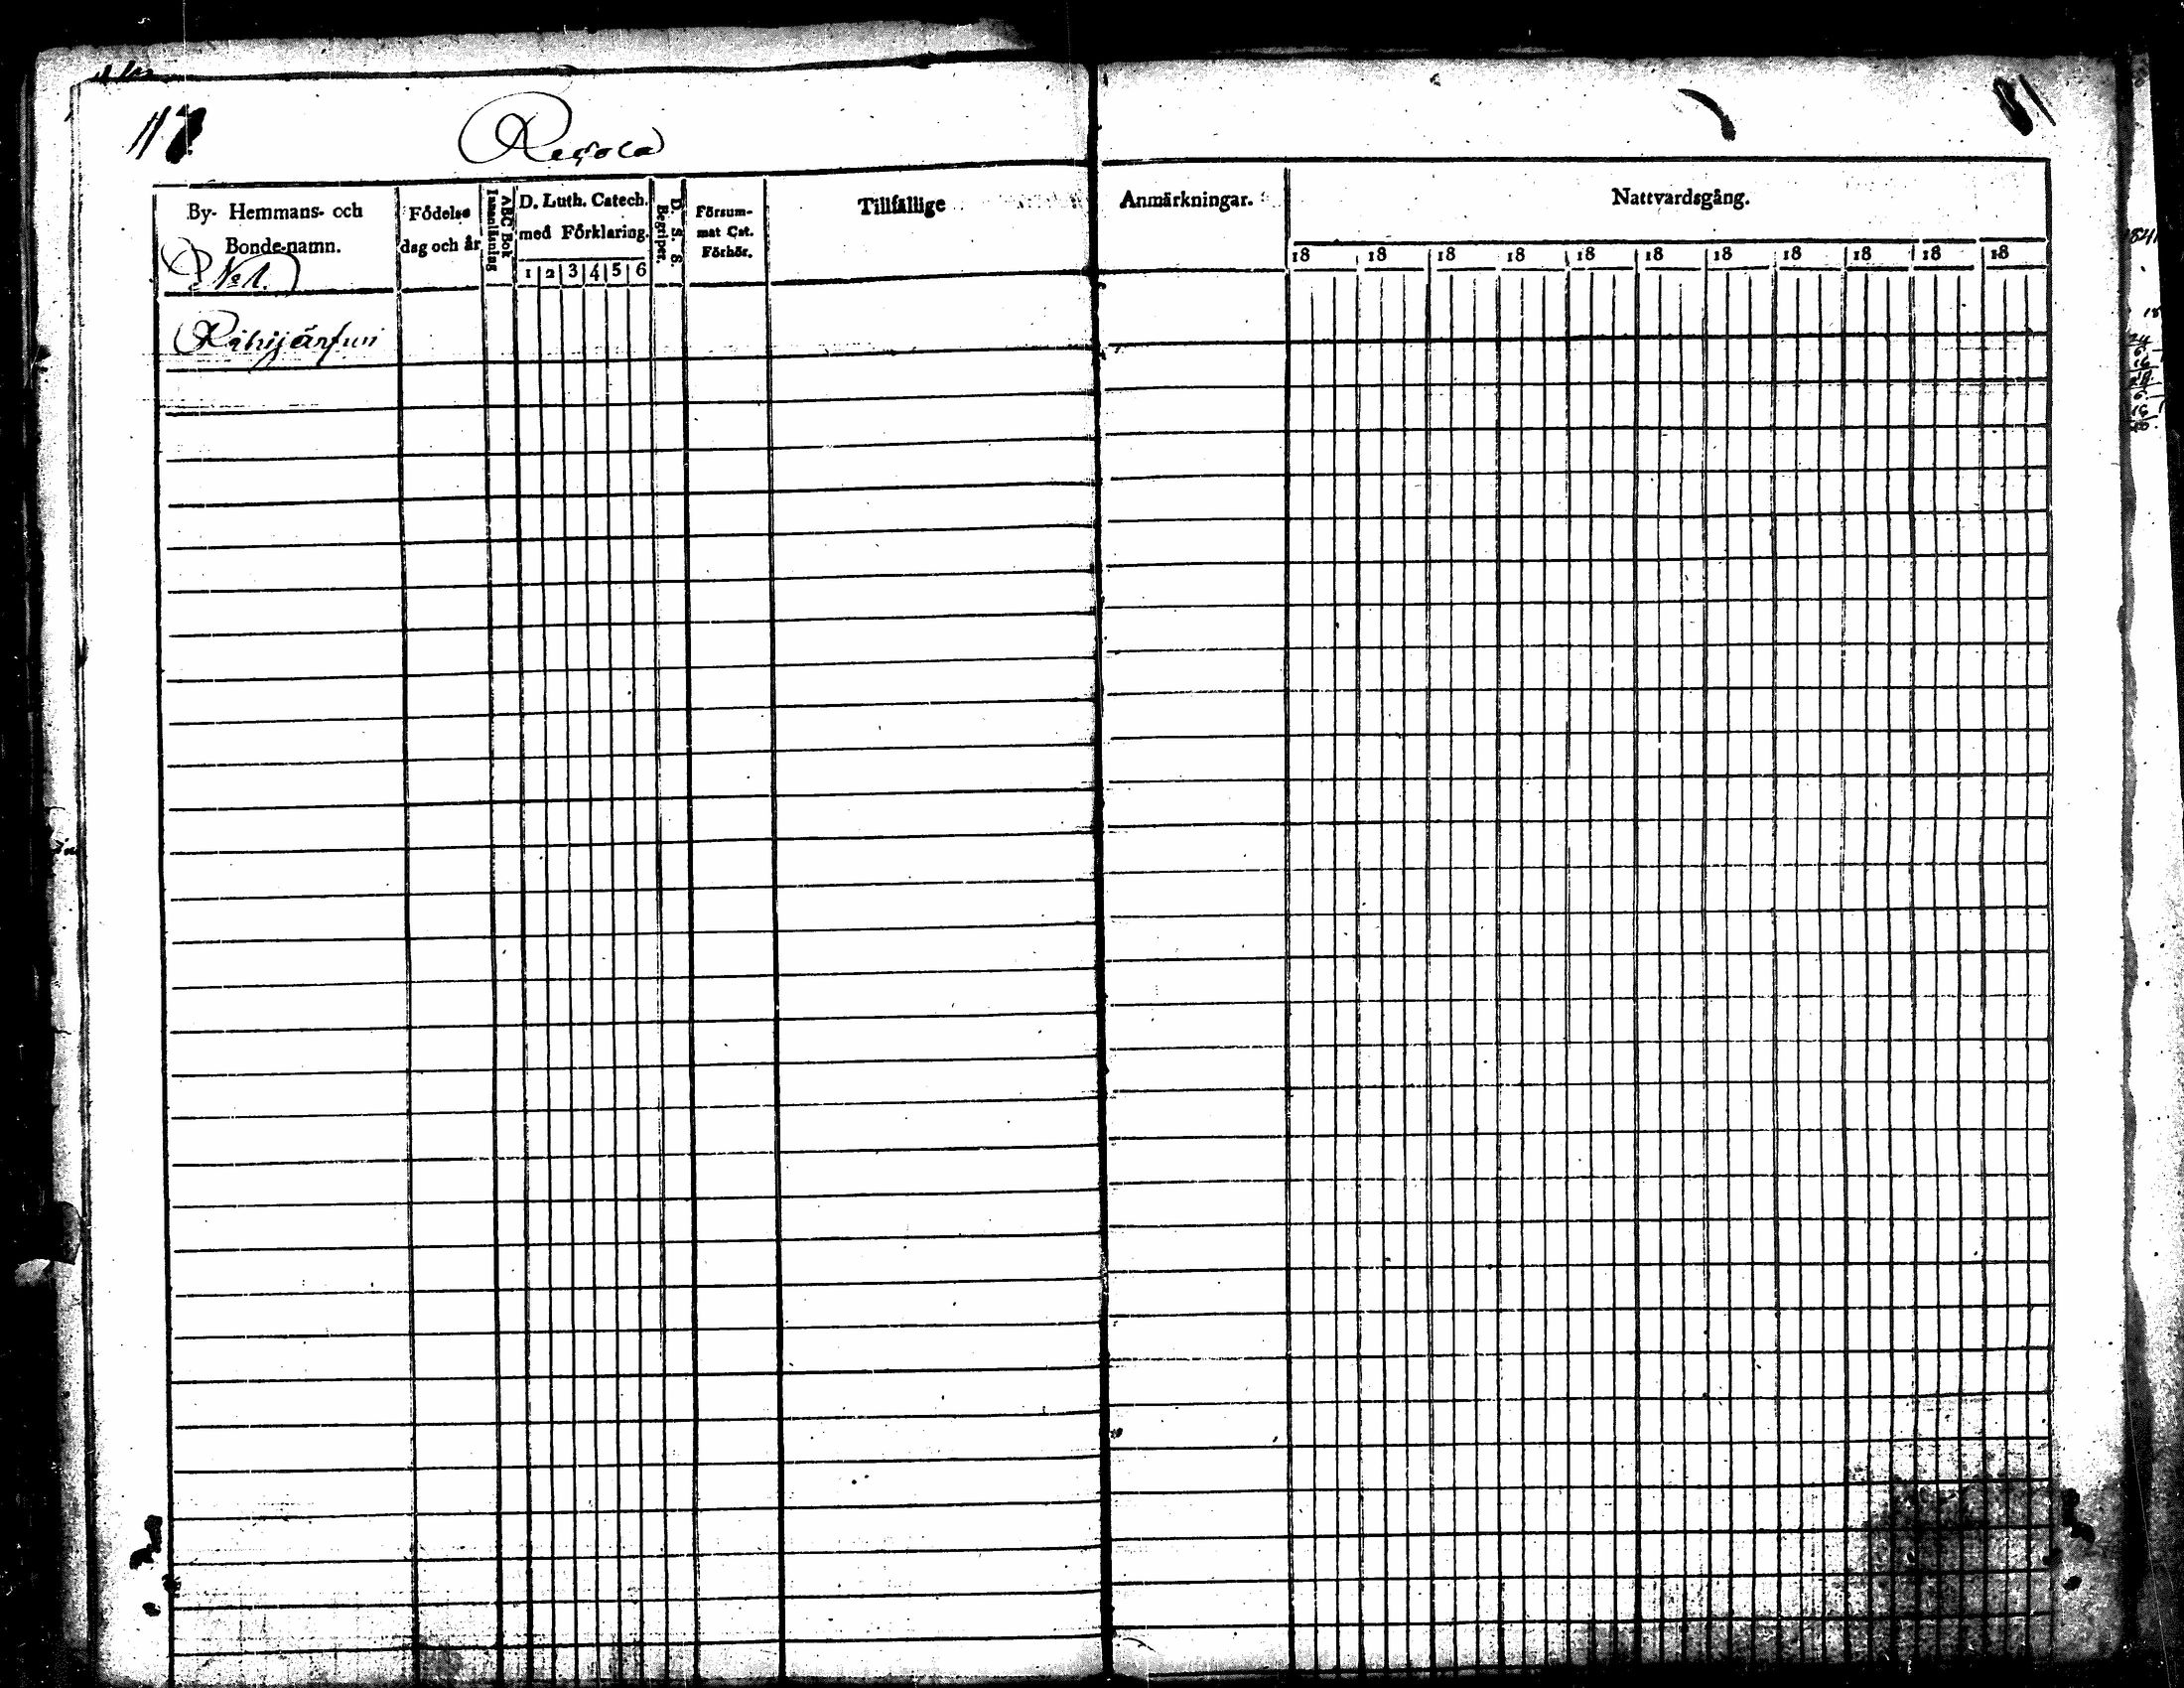 117
81
Recola
By- Hemmans- och Bonde-namn.
Födelse dag och år
ABC Bok Innanläsning
D. Luth. Catech. med Förklaring.
1 2 3 4 5 6
D. S. S. Begriper.
Försum- mat Cat. Förhör.
Tillfällige
Anmärkningar.
Nattvardsgång.
18 18 18 18 18 18 18 18 18 18 18
No 1.
Rihijärfwi